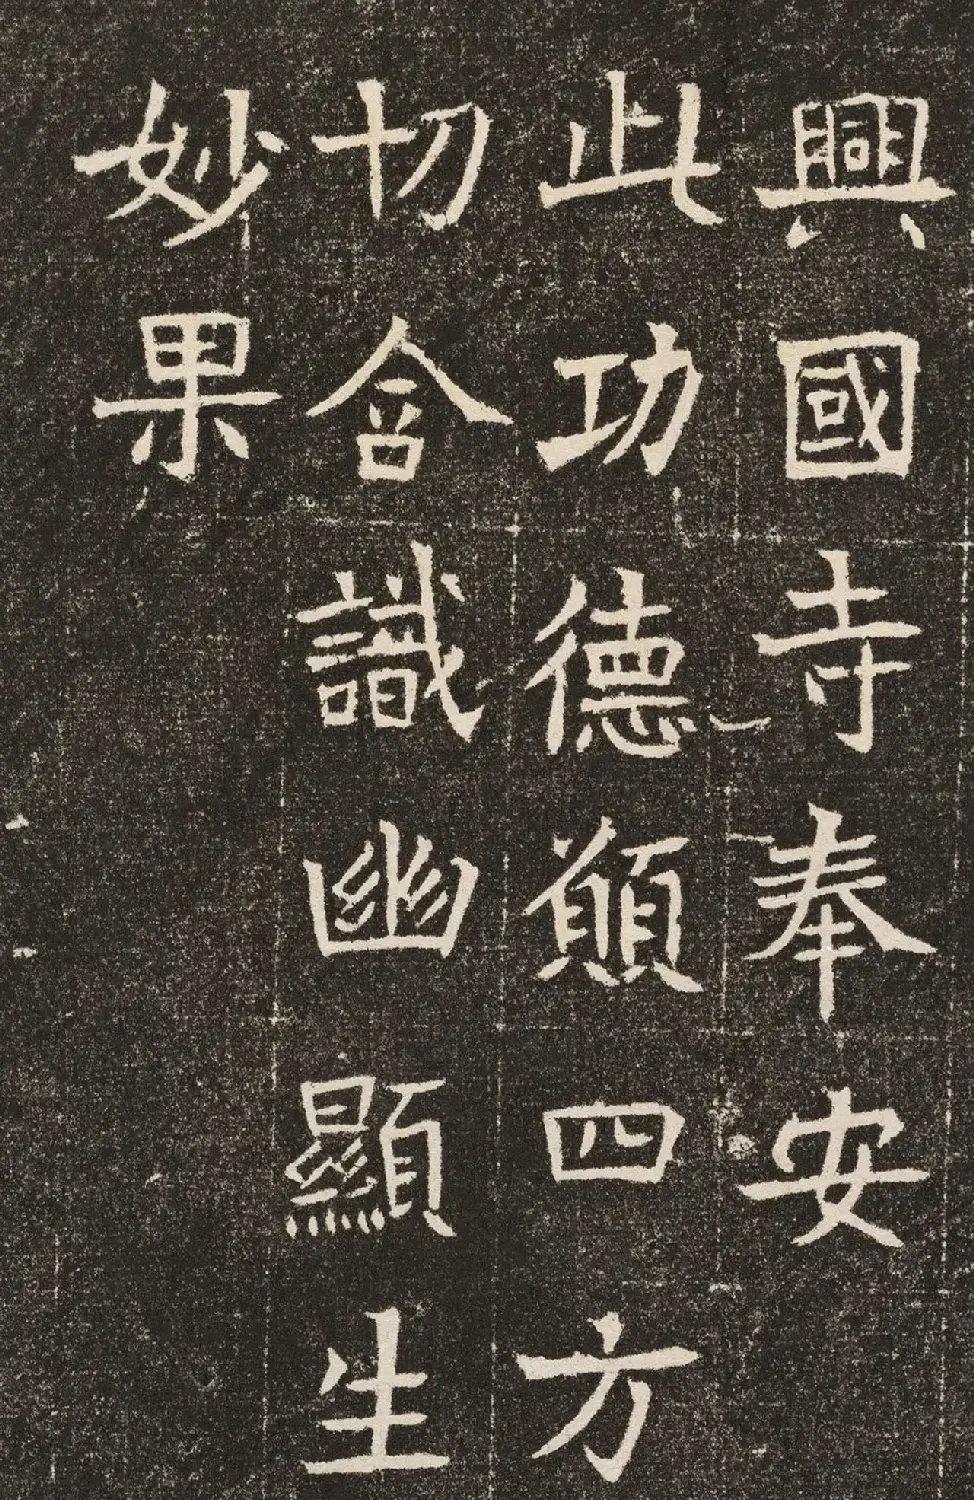 興國寺奉安
此功德願四方
切含識幽顯生
妙果